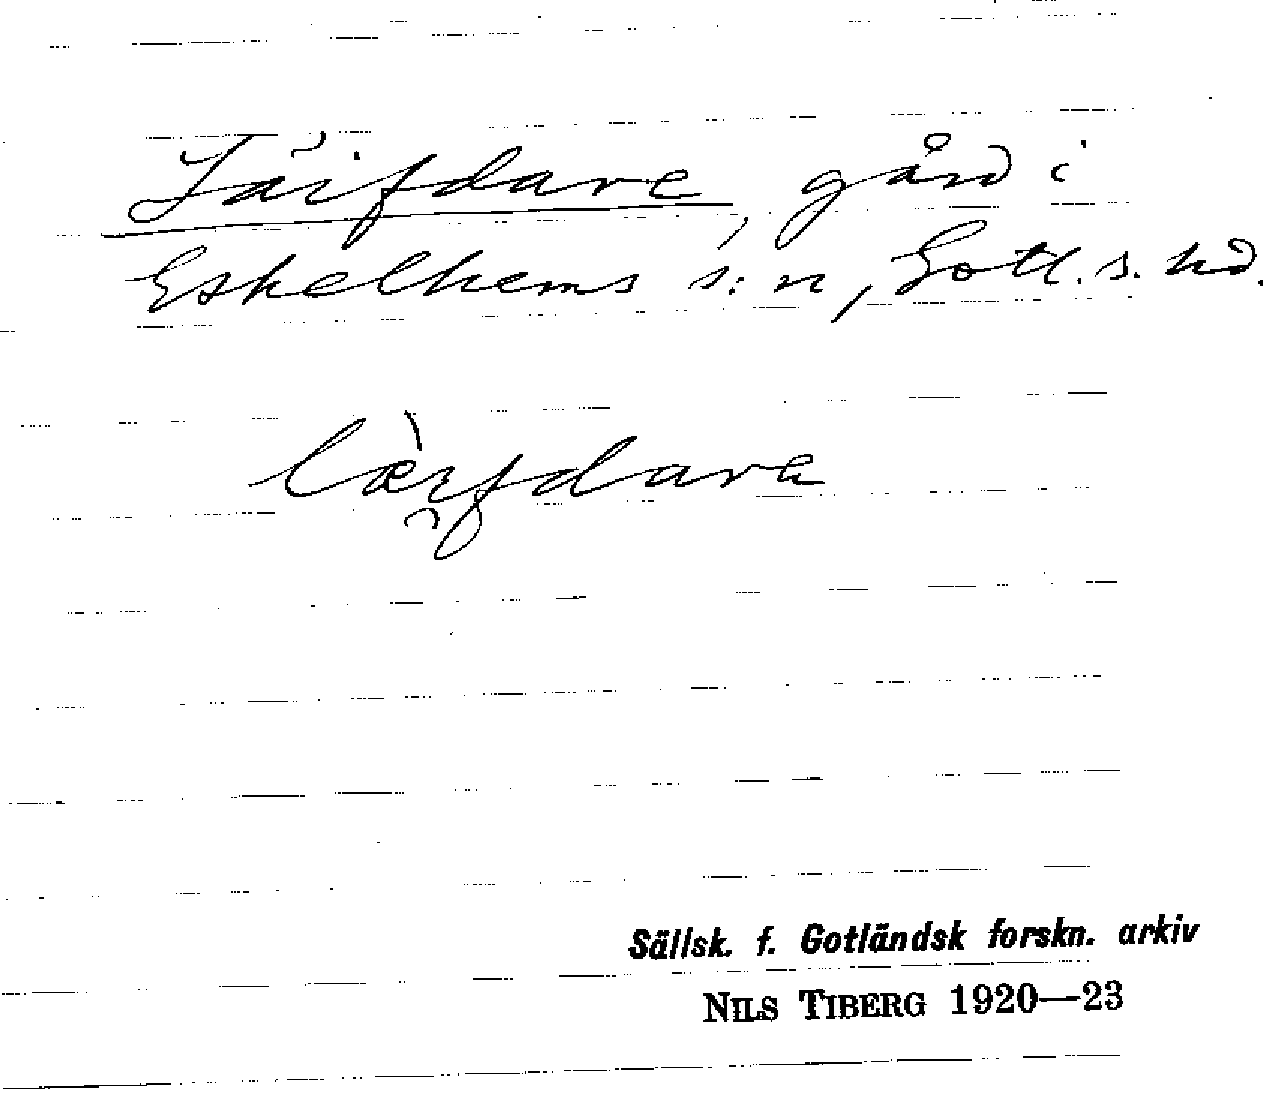 Läifdare, gård i
Eskelhems s:n, Gotl. s. hd.
lӕ̀i̯fdara
Sällsk. f. Gotländsk forskn. arkiv
NILS TIBERG 1920—23